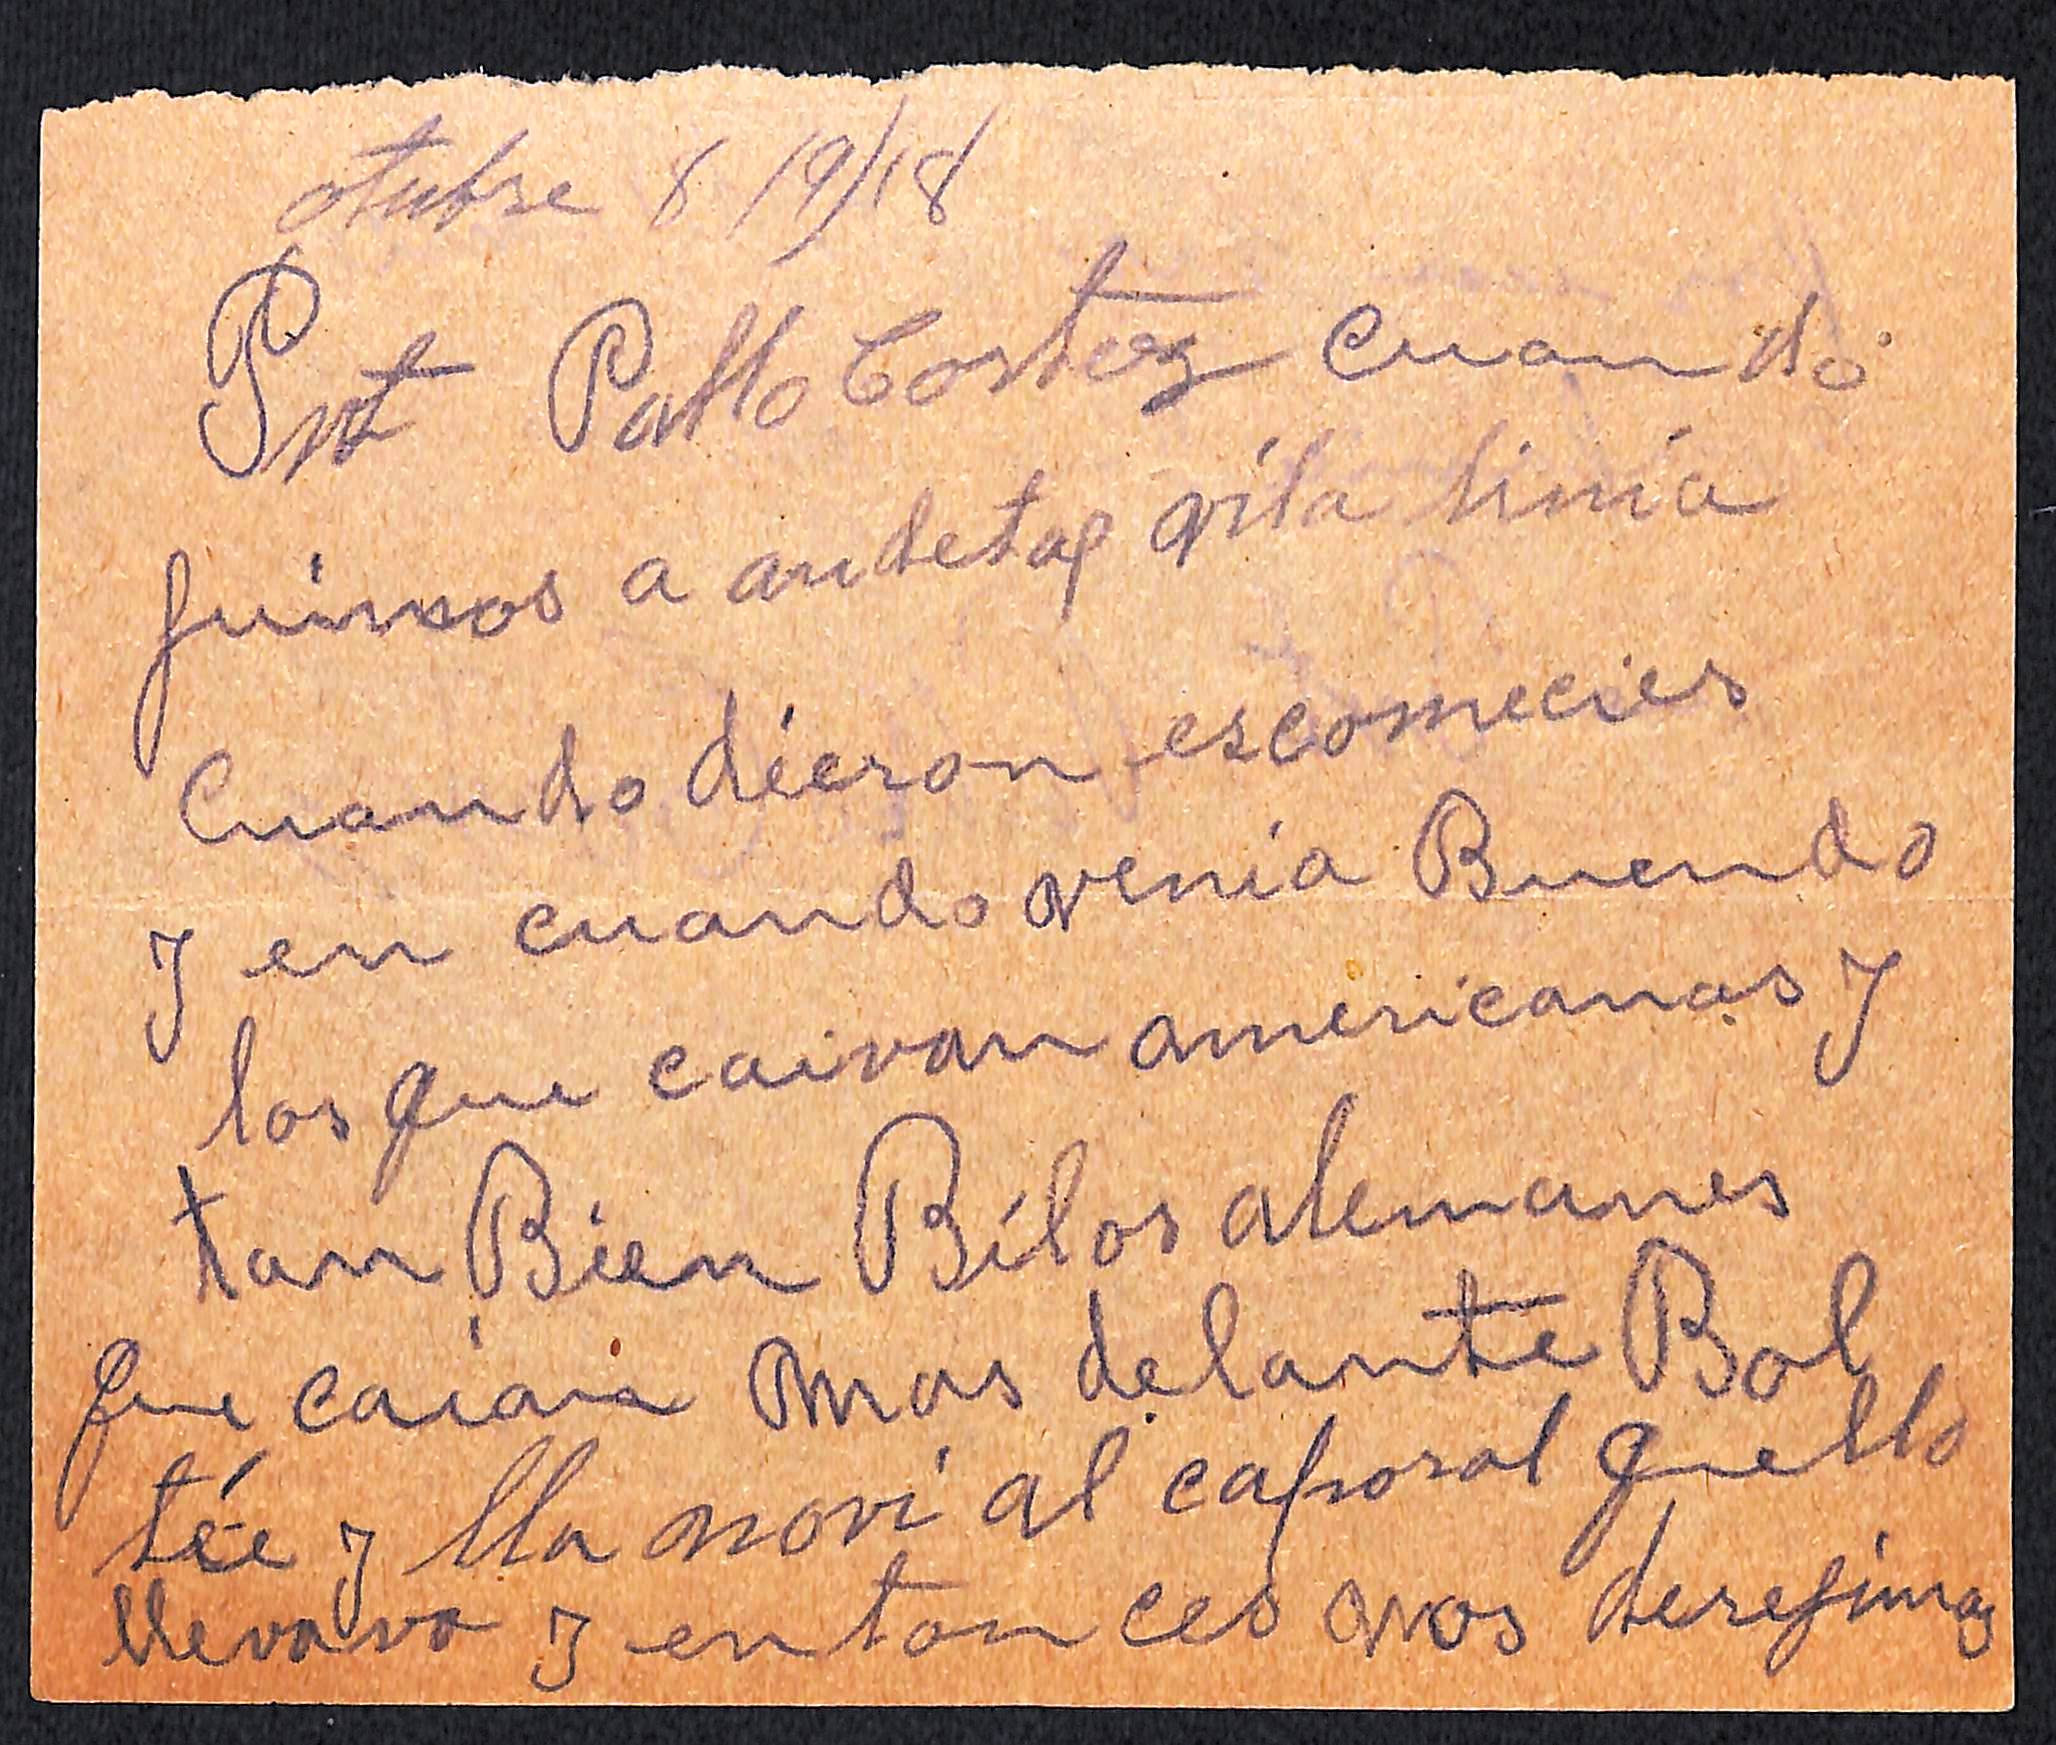 otubre 8 19/18
Pvt Pablo Cortez cuando
fuimos a andetap vila linia
Cuando dieron escomecies
y en cuando venia Buendo
los que caivan americanos y
tan Bien Bilos alemanes
que caian mas delante Bol
tée y lla novi al caporal quello
llevava y entonces nos